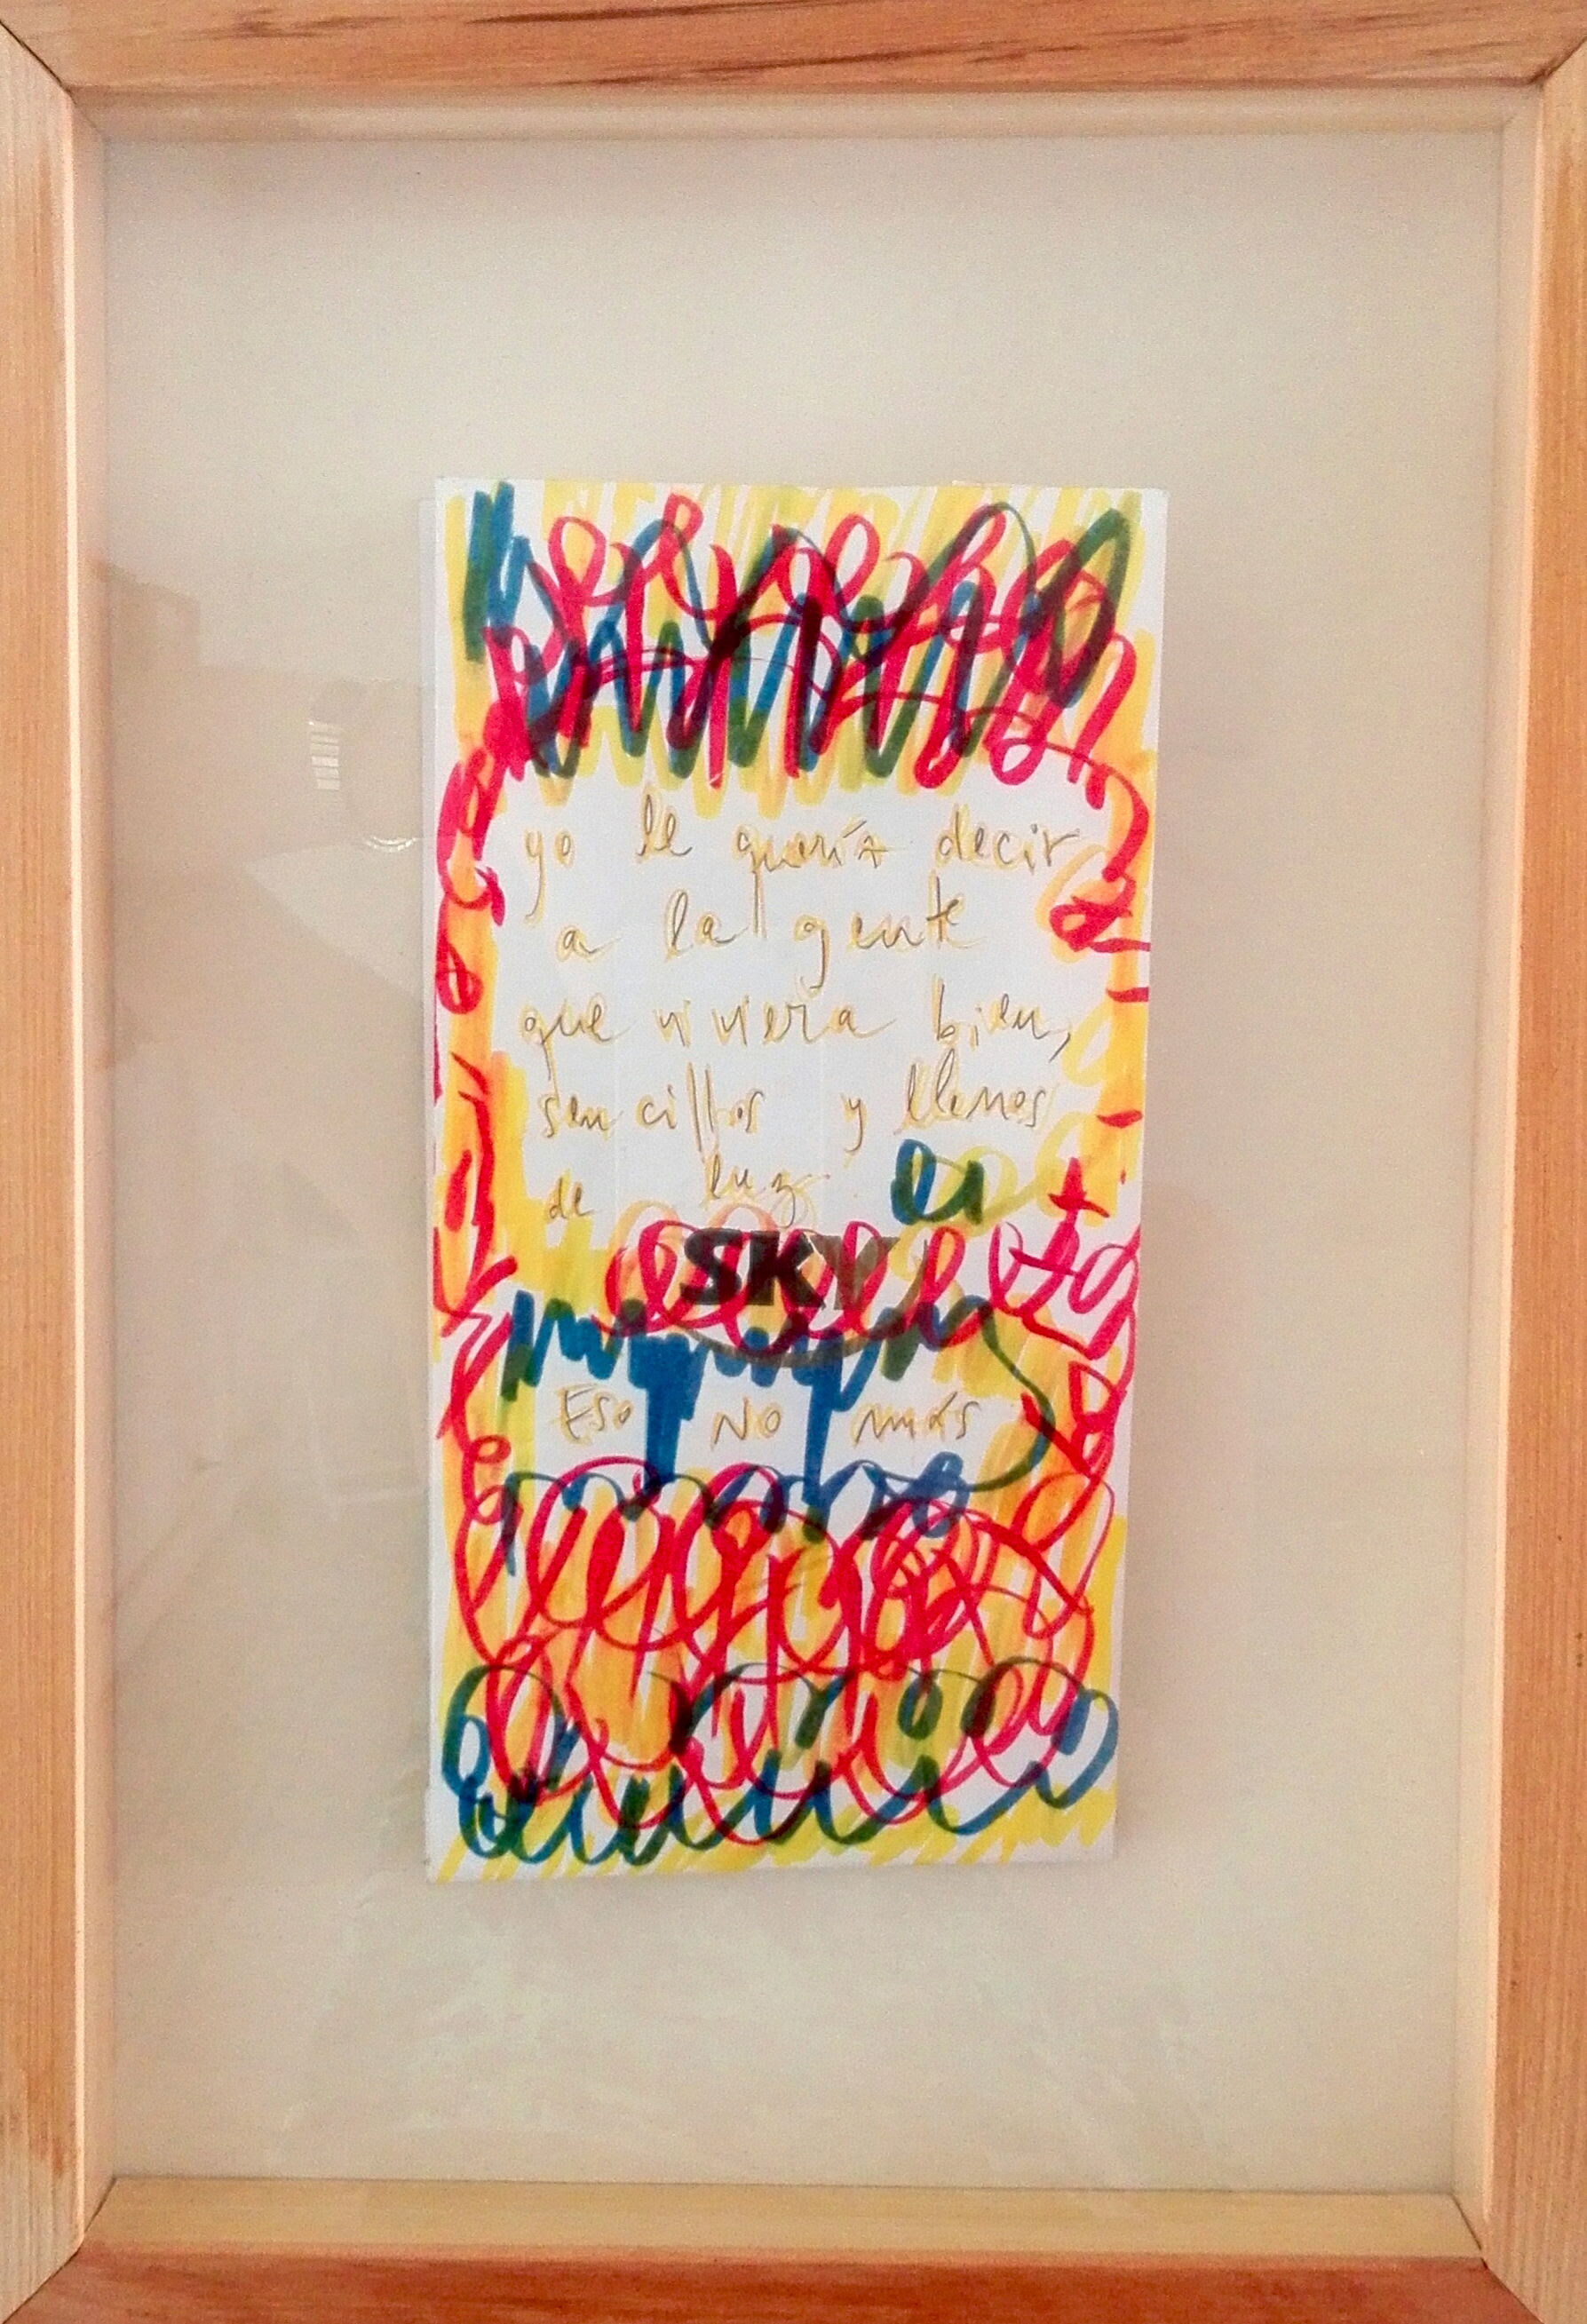 yo le quería decir
a la gente
que viviera bien,
sencillos y llenos
de luz
SKY
Eso no más